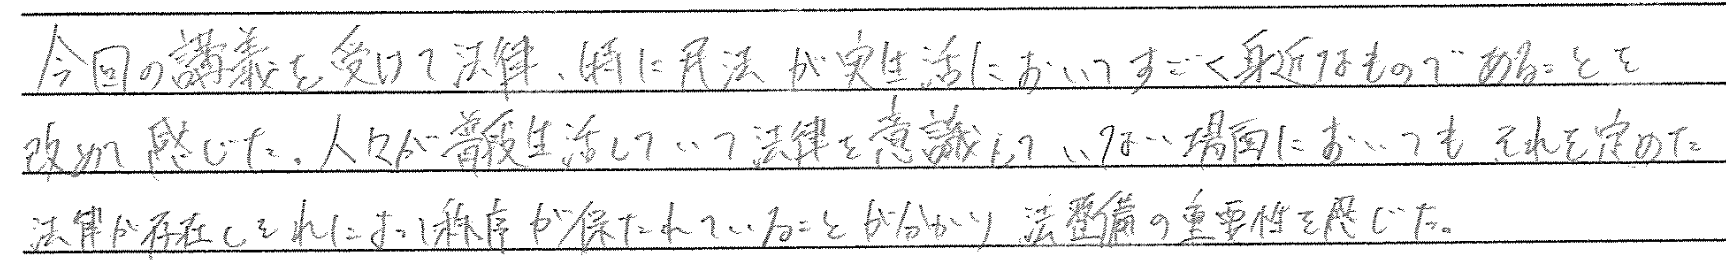 今回の講義を受けて法律、特に民法が実生活においてすごく身近なものであることを
改めて感じた。人々が普段生活していて法律を意識していない場面においてもそれを定めた
法律が存在しそれによって秩序が保たれていることが分かり法整備の重要性を感じた。